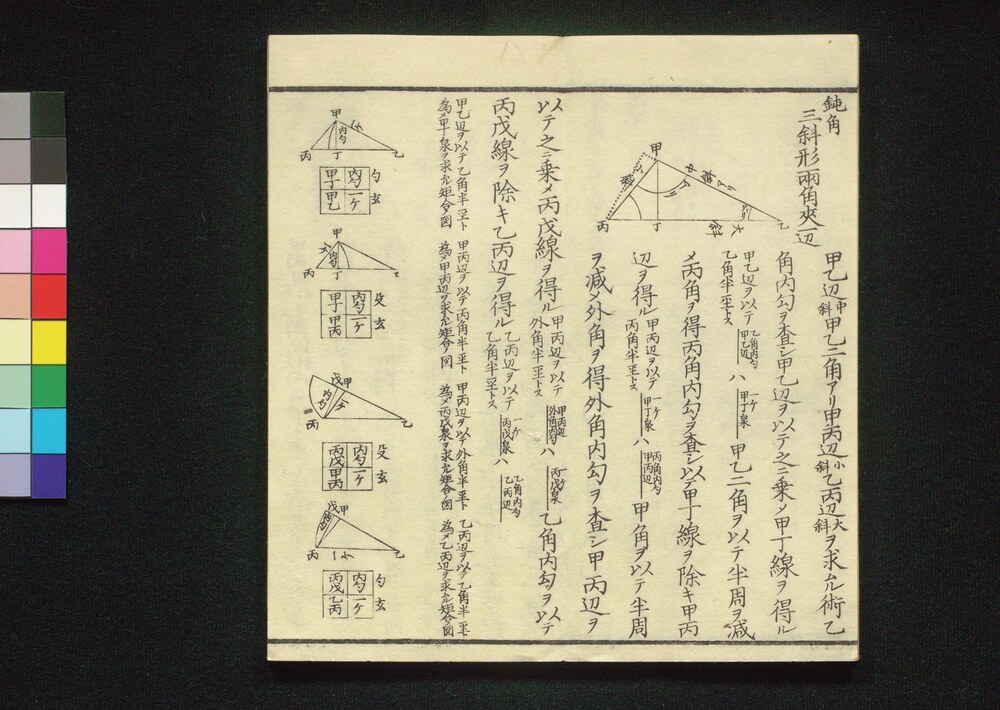 鈍角
三斜形兩角夾一辺
甲乙辺中斜甲乙二角アリ甲丙辺小斜乙丙辺大斜ヲ求ムル術乙
角内勾ヲ査シ甲乙辺ヲ以テ之ニ乗メ甲丁線ヲ得ル
甲乙辺ヲ以テ
乙角半至トス
乙角内勾
甲乙辺
ハ
一ケ
甲丁泉
甲乙二角ヲ以テ半周ヲ減
メ丙角ヲ得丙角内勾ヲ査シ以テ甲丁線ヲ除キ甲丙
辺ヲ得ル
甲丙辺ヲ以テ
丙角半至トス
一ケ
甲丁泉
ハ
丙角内勾
甲丙辺
甲角ヲ以テ半周
ヲ減メ外角ヲ得外角内勾ヲ査シ甲丙辺ヲ
以テ之ニ乗メ丙戊線ヲ得ル
甲丙辺ヲ以テ
外角半至トス
甲丙辺
外角内勾
ハ
一ケ
丙戊泉
乙角内勾ヲ以テ
丙戊線ヲ除キ乙丙辺ヲ得ル
乙丙辺ヲ以テ
乙角半至トス
一ケ
丙戊泉
ハ
乙角内勾
乙丙辺
甲乙辺ヲ以テ乙角半至ト
為メ甲丁泉ヲ求ル矩合図
甲丙辺ヲ以テ丙角半至ト
為メ甲丙辺ヲ求ル矩合図
甲丙辺ヲ以テ外角半至ト
為メ丙戊泉ヲ求ル矩合図
乙丙辺ヲ以テ乙角半至
為メ乙丙辺ヲ求ル矩合図
甲
乙
丙
丁
中斜
大斜
甲
乙
丙
丁
内勾
勾
玄
内勾 一ケ
甲丁 甲乙
甲
乙
丙
丁
内勾
殳
玄
内勾 一ケ
甲丁 甲丙
戊甲
乙
丙
内勾
殳
玄
内勾 一ケ
丙戊 甲丙
戊甲
乙
丙
内勾
一ケ
勾
玄
内勾 一ケ
丙戊 乙丙